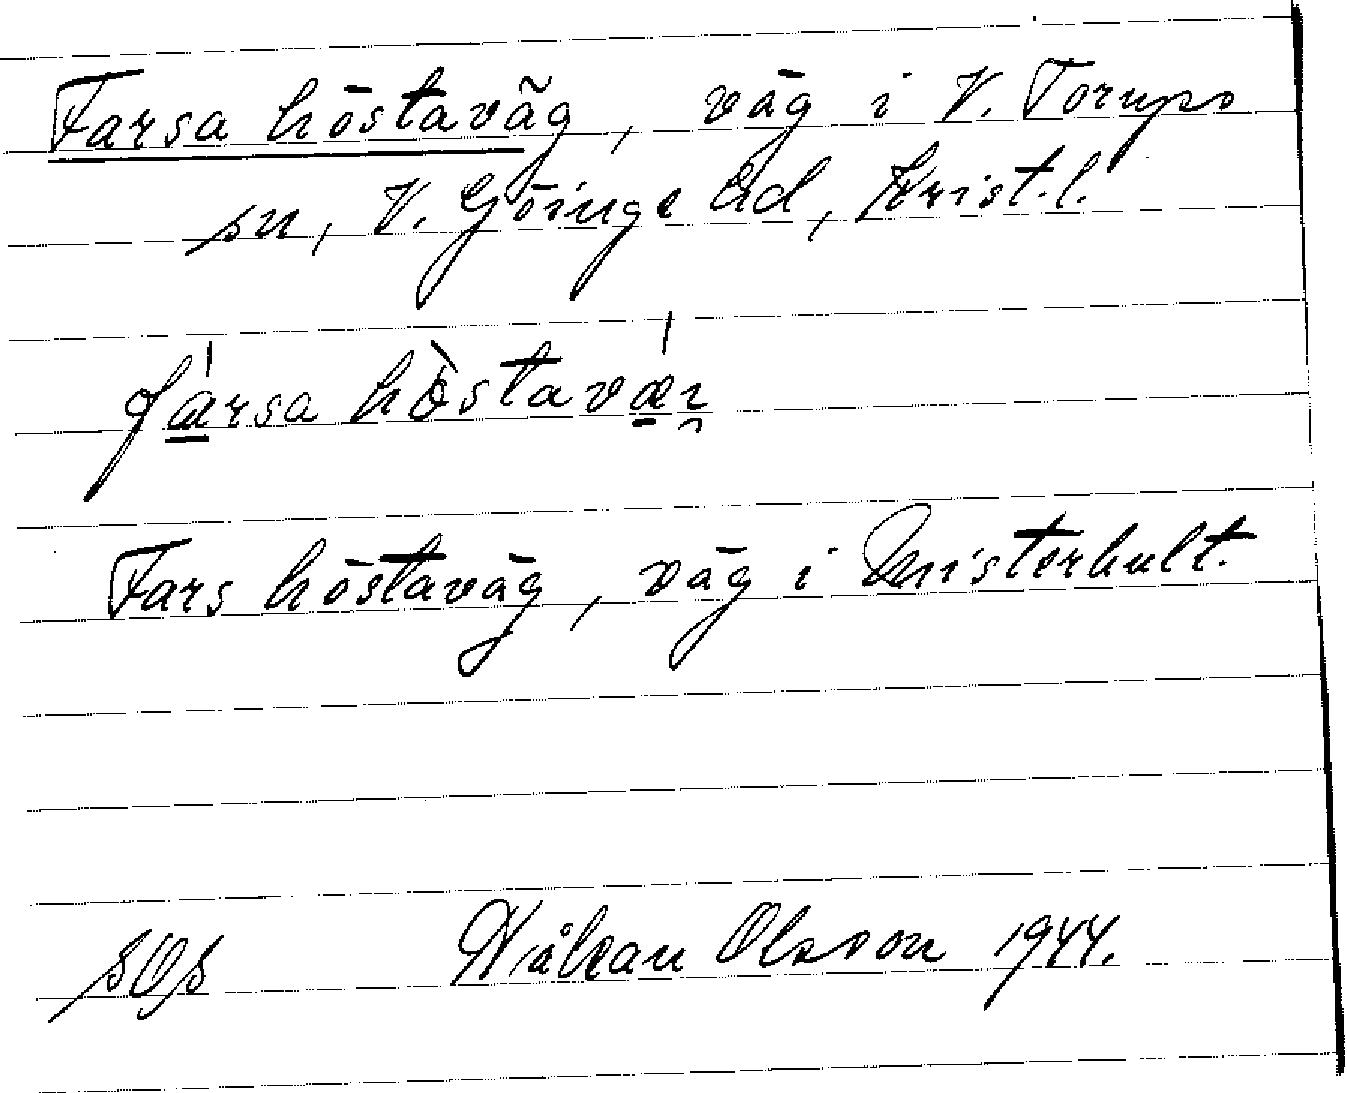 Farsa höstaväg, väg i V. Torups
sn, V. Göinge hd, Krist.l.
fársa hòstavǽi̯
Fars höstaväg, väg i Unisterhult.
SOS Håkan Olsson 1944.